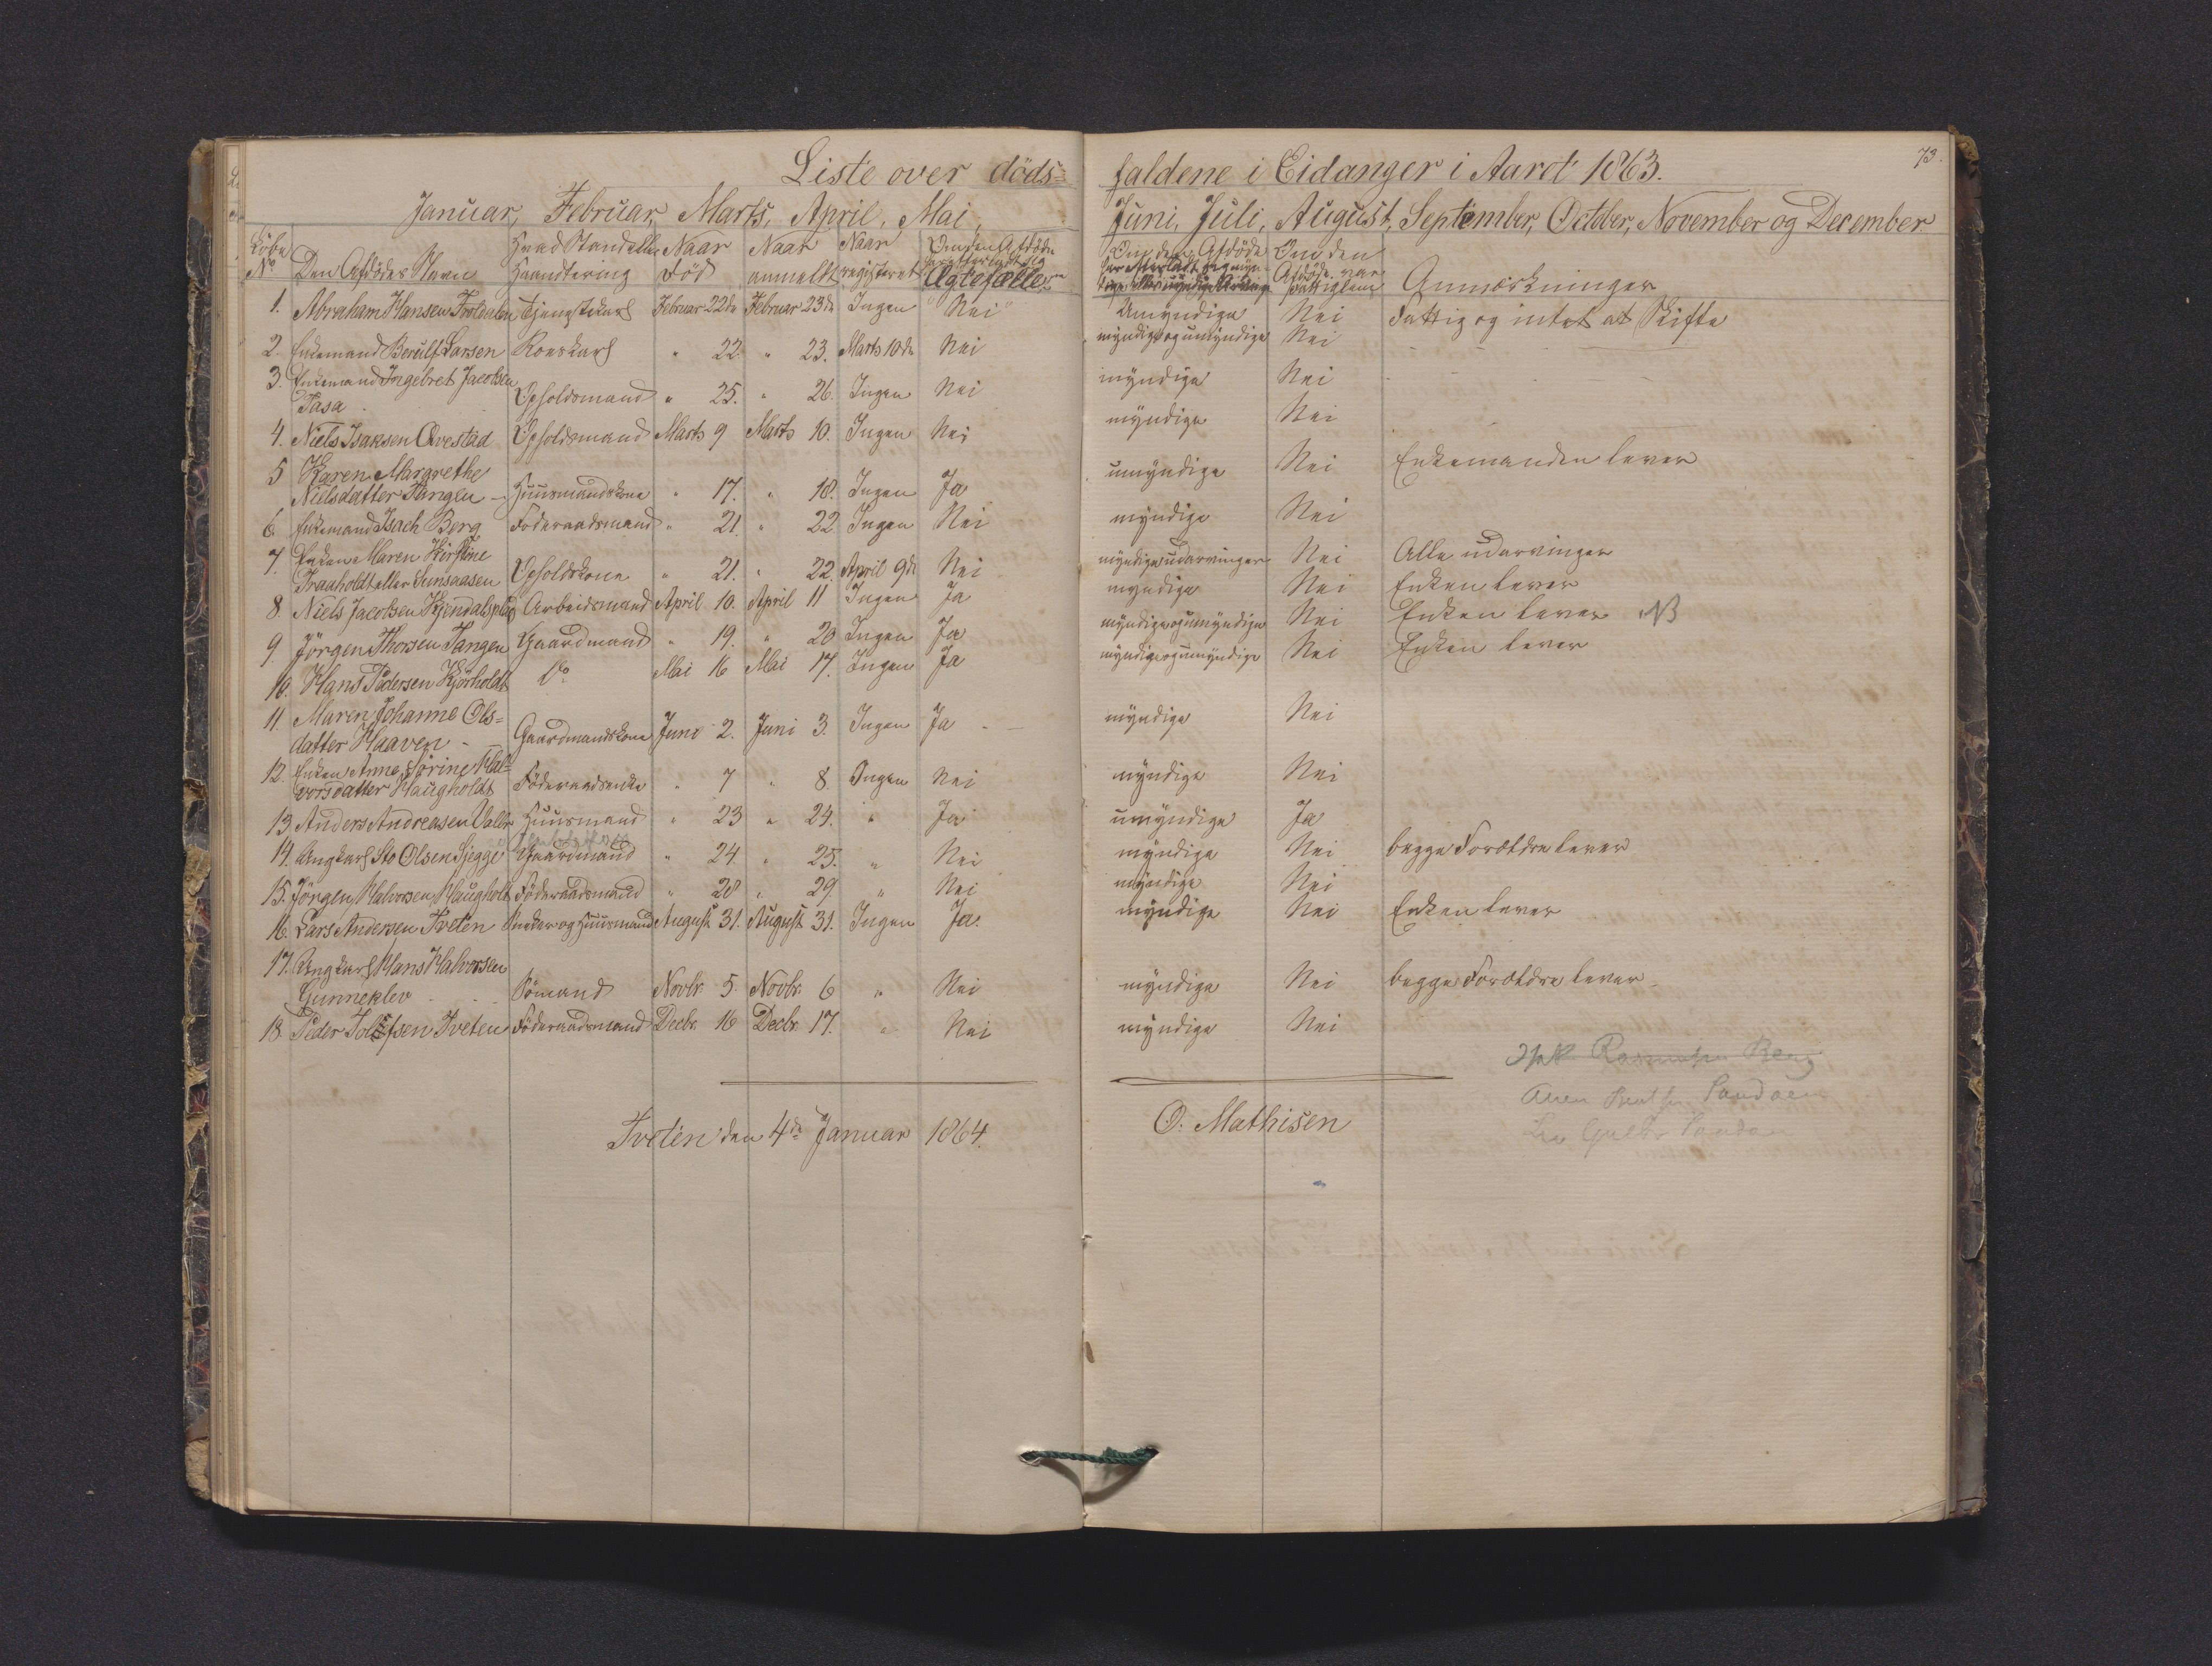 73.
Liste over döds= faldene i Eidanger i Aaret 1863.
Januar, Februar, Marts, April, Mai Juni, Juli, August, September, October, November og December
Löbe No Den Afdödes Navn Hvad Stand eller Haandtering Naar Död Naar anmeldt Naar registeret Om den Afdöde har efterladt sig Ægtefælle Om den Afdöde har efterladt sig myndige eller umyndige Arvinge Om den Afdöde var fattiglem Anmærkninger
1. Abraham Hansen Tjenestekarl Februar 22de Februar 23de Ingen Nei Umyndige Nei Fattig og intet at Skifte
2. Enkemand Berulf Larsen Kones karl " 22. " 23. Marts 10de Nei myndige og umyndige Nei
3. Enkemand Ingebret Jacobsen
Tasa Opholdsmand " 25. " 26. Ingen Nei myndige Nei
4. Niels Isaksen Qvestad Opholdsmand Marts 9 Marts 10. Ingen Nei myndige Nei
5 Karen Margrethe
Nielsdatter Tangen Huusmandskone " 17. " 18. Ingen Ja umyndige Nei Enkemanden lever
6. Enkemand Isach Berg Föderaadsmand " 21 " 22 Ingen Nei myndige Nei
7. Enken Maren Kirstine
Traaholdt eller Sunsaasen Opholdskone " 21. " 22. April 9de Nei myndige udarvinger Nei Alle udarvinger
8 Niels Jacobsen Kjendalsplads Arbeidsmand April 10. April 11 Ingen Ja myndige Nei Enken lever
9. Jörgen Thorsen Tangen Gaardmand " 19. " 20 Ingen Ja myndige og umyndige Nei Enken lever NB
10. Hans Pedersen Kjörholdt Do Mai 16 Mai 17. Ingen Ja myndige og umyndige Nei Enken lever
11 Maren Johanne Ols=
datter Haaven Gaardmandskone Juni 2. Juni 3. Ingen Ja myndige Nei
12. Enken Anne Sörine Hal=
vorsdatter Haugholdt Föderaadsenke " 7 " 8. Ingen Nei myndige Nei
13 Anders Andreasen Valler Huusmand " 23 " 24. " Ja umyndige Ja
14. Ungkarl Olsen Sjegge Gaardmand " 24 " 25. " Nei myndige Nei begge Forældre lever
15. Jörgen Halvorsen Haugholt Föderaadsmand " 28 " 29 " Nei myndige Nei
16. Lars Andersen Tveten og Huusmand August 31. August 31. Ingen Ja. myndige Nei Enken lever
17. Ungkarl Hans Halvorsen
Gunneklev Sömand Novbr. 5. Novbr. 6 " Nei myndige Nei begge Forældre lever
18. Peder Tollefsen Tveten Föderaadsmand Decbr. 16 Decbr. 17. " Nei myndige Nei
Tveten den 4de Januar 1864. O. Mathisen